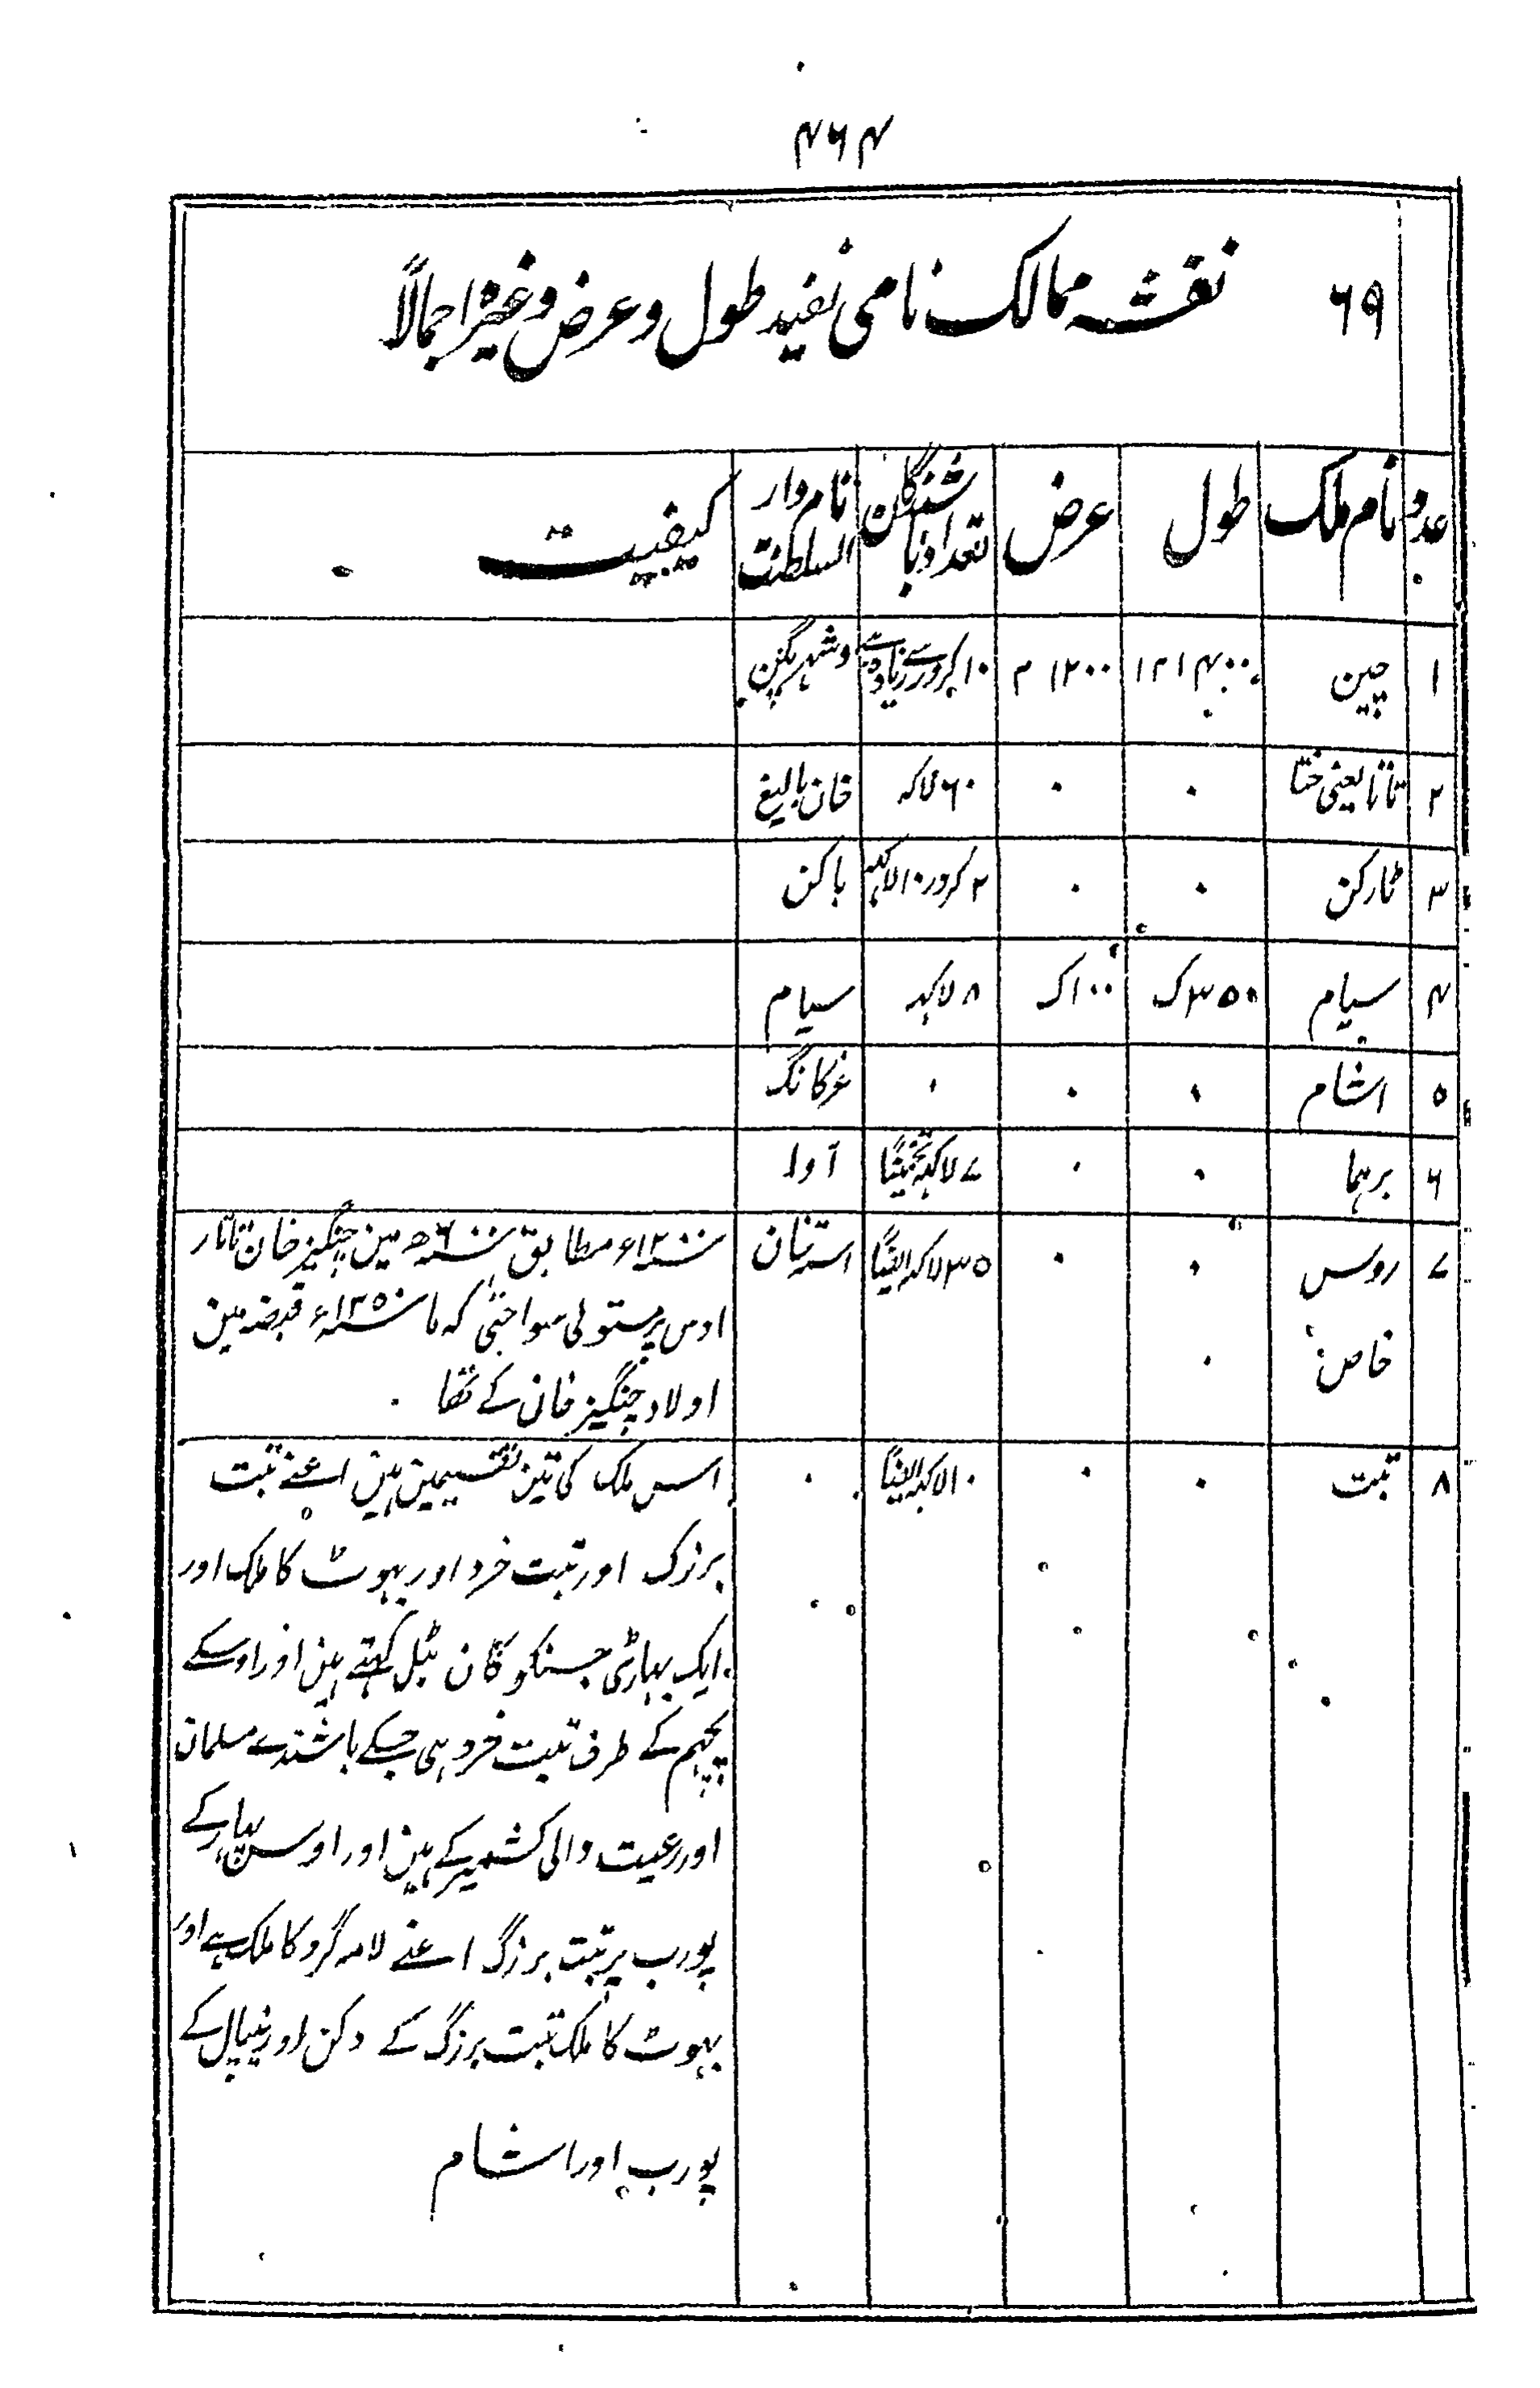 ۴۶۴
۶۹ نقشہ ممالک نامی بقید طول و عرض وغیرہ اجمالاً
عدد نام ملک طول عرض تعداد باشندگان نام دار السلطنت کیفیت
۱ چین ۱۲۰۰ م ۱۰ کرور سے زیادہ
۲ تاتار یعنی ختا ۰ ۰ ۶۰ لاکہ خان بالیغ
۳ ٹارکن ۰ ۰ ۲ کرور ۱۰ لاکہہ باکن
۴ سیام ۳۵۰ ک ۱۰۰ ک ۸ لاکہہ سیام
۵ اشام ۰ ۰ ۰ غرکانگ
۶ برہما ۰ ۰ ۷ لاکہہ تخمیناً آوا
۷ روس خاص ۰ ۰ ۳۵ لاکہہ ایضاً استنان
سنہ ۱۲۰۰ء مطابق سنہ ۶۰۰ھ مین چنگیز خان تاتار
اوس پر مستولی ہوا حتیٰ کہ تا سنہ ۱۲۵۰ء قبضہ مین
اولاد چنگیز خانی کے تھا
۸ تبت ۰ ۰ ۱۰ لاکہہ ایضاً ۰
اس ملک کی تین تقسیمین ہین اعنے تبت
بزرک اور تبت خرد اور بہوٹ کا ملک اور
ایک پہاڑی جسکو کان ٹل کہتے ہین اور اوسکے
پچہم کے طرف تبت خرد ہی جسکے باشندے مسلمان
اور رعیت والی کشمیر کے ہین اور اوس پہاڑ کے
پورب پر تبت بزرگ اعنے لامہ گرو کا ملک ہے اور
بہوٹ کا ملک تبت بزرگ کے دکن اور نیپال کے
پورب اور اشام